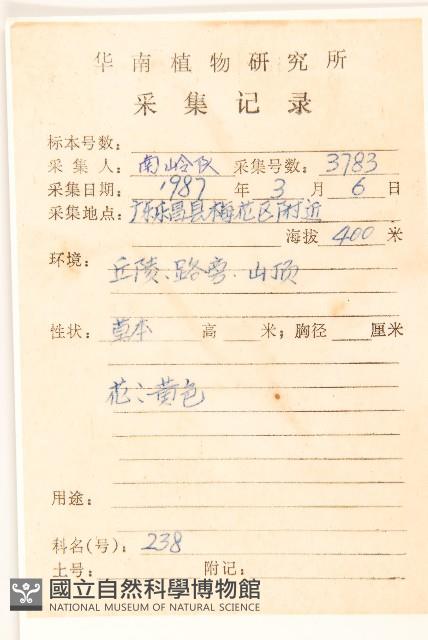 华南植物研究所
采集记录
标本号数：
采集人：南岭队 采集号数：3783
采集日期：1987 年 3 月 6 日
采集地点：广东乐昌县梅花区附近
海拔 400 米
环境：丘陵、路旁、山顶
性状：草本 高 米；胸径 厘米
花：黄色
用途：
科名(号)：238
土号： 附记：
國立自然科學博物館
NATIONAL MUSEUM OF NATURAL SCIENCE